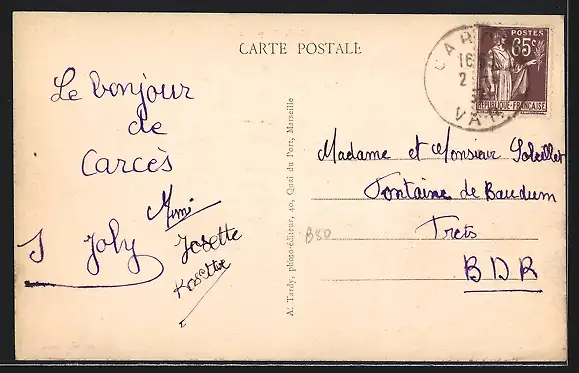 CARTE POSTALE
Le bonjour
de
Carcès
Mimi
J Joly
Josette
A. Tardy, photo-éditeur, 40, Quai du Port, Marseille
POSTES
65c
RÉPUBLIQUE-FRANÇAISE
CAR
16
2
VAR
Madame et Monsieur Soleillet
Fontaine de Baudum
Trets
BDR
B80